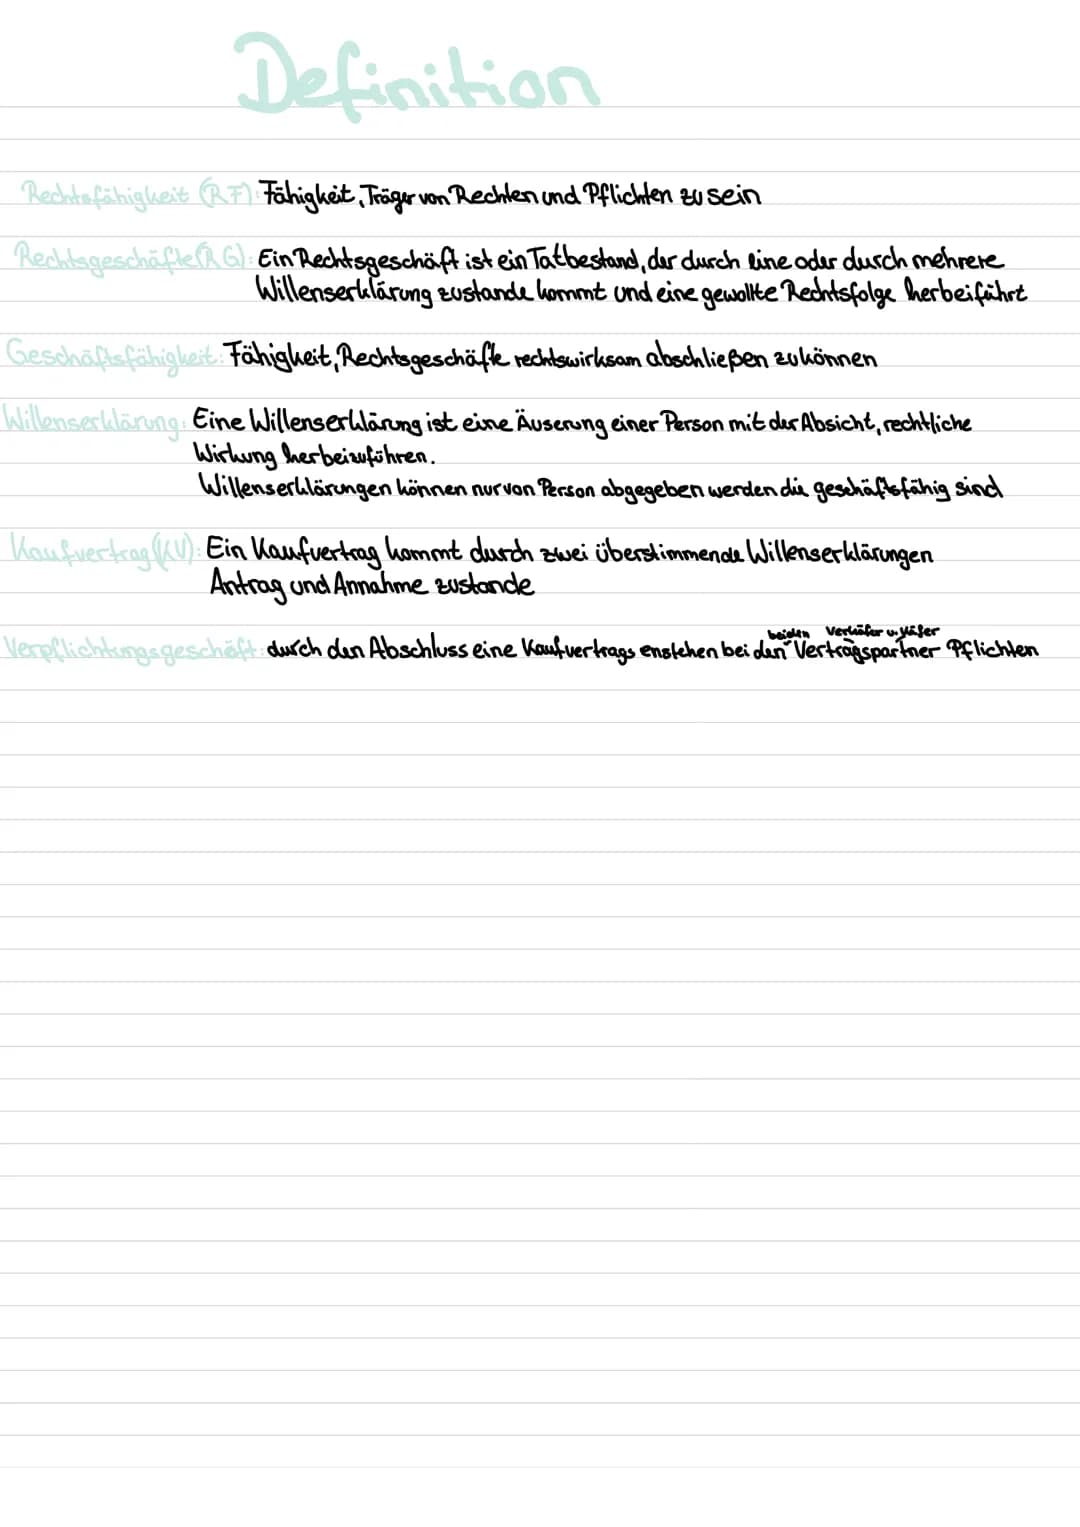 Definition
Rechtsfähigkeit (RF): Fähigkeit, Träger von Rechten und Pflichten zu sein
Rechtsgeschäfte (RG): Ein Rechtsgeschäft ist ein Tatbestand, der durch eine oder durch mehrere
Willenserklärung zustande kommt und eine gewollte Rechtsfolge herbeiführt
Geschäftsfähigkeit: Fähigkeit, Rechtsgeschäfte rechtswirksam abschließen zu können
Willenserklärung: Eine Willenserklärung ist eine Äuserung einer Person mit der Absicht, rechtliche
Wirkung herbeizuführen.
Willenserklärungen können nur von Person abgegeben werden die geschäftsfähig sind
Kaufvertrag (KV): Ein Kaufvertrag kommt durch zwei überstimmende Willenserklärungen
Antrag und Annahme zustande
beiden Verkäufer u. Käfer
Verpflichtungsgeschäft: durch den Abschluss eine Kaufvertrags enstehen bei den Vertragspartner Pflichten